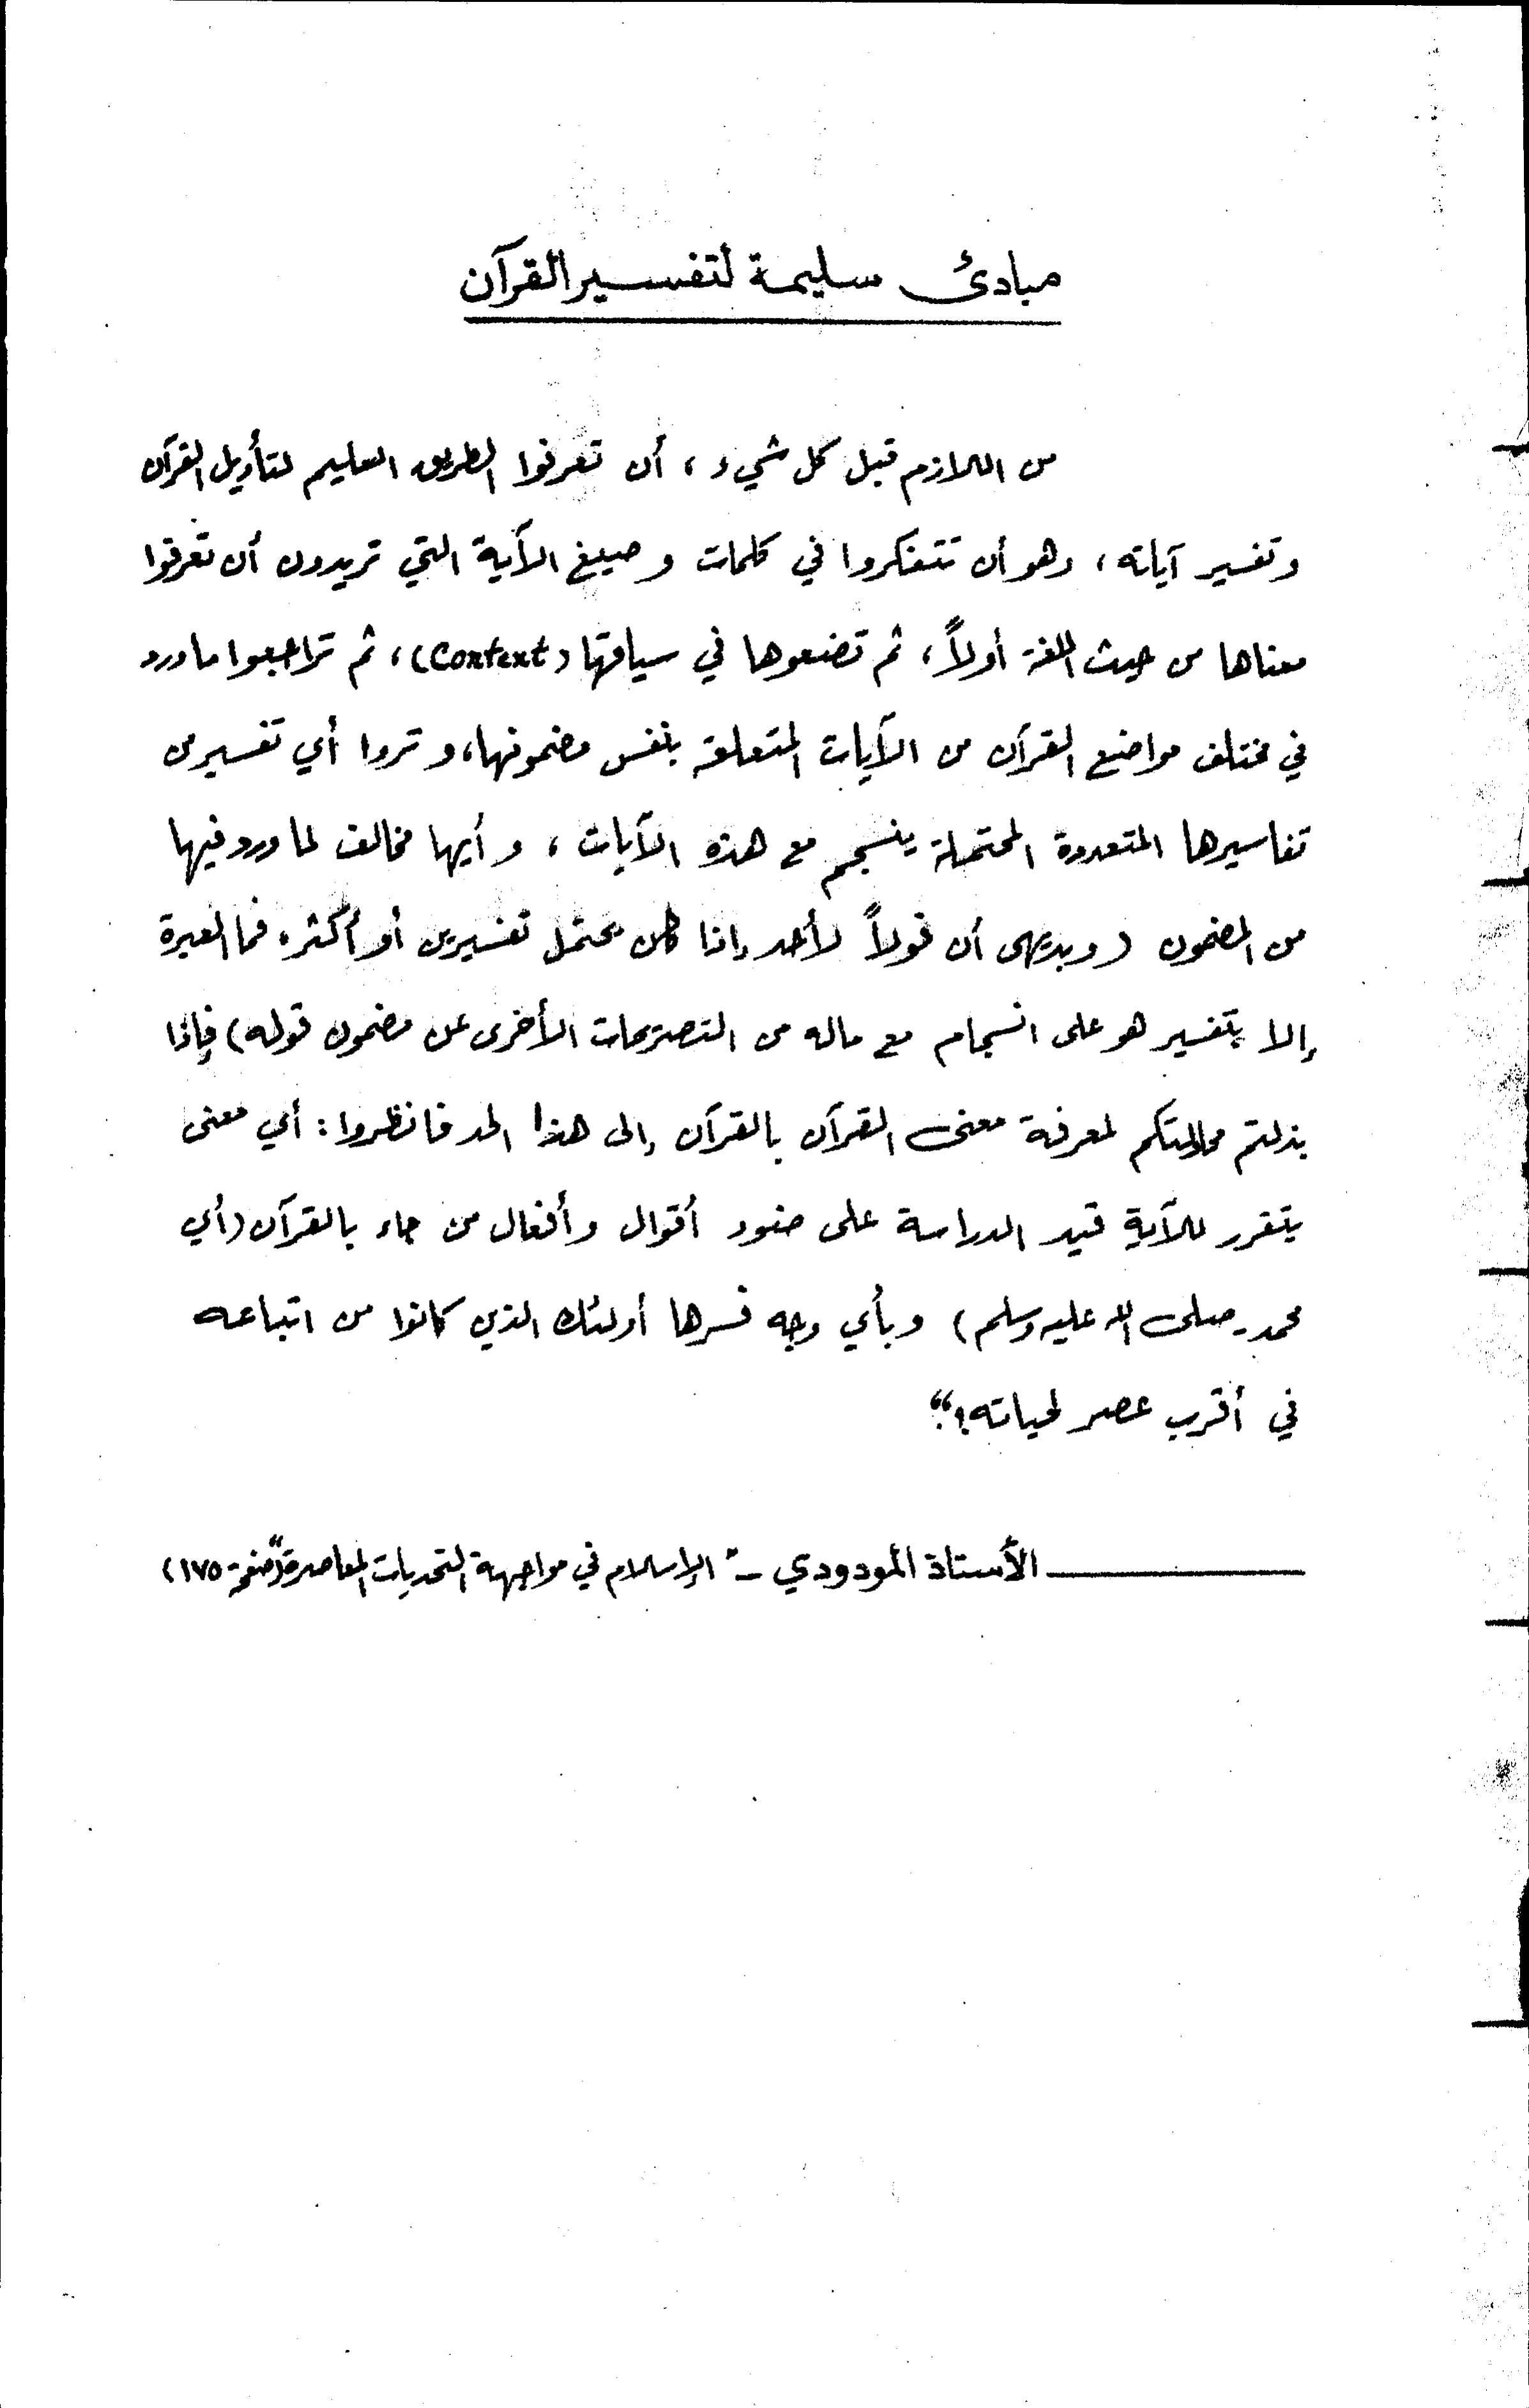 مبادئ سليمة لتفسير القرآن
من اللازم قبل كل شيء ، أن تعرفوا الطريق السليم لتأويل القرآن
وتفسير آياته ، وهو أن تتفكروا في كلمات وصيغ الآية التي تريدون أن تعرفوا
معناها من حيث اللغة أولاً ، ثم تضعوها في سياقها (Context) ، ثم تراجعوا ما ورد
في مختلف مواضع القرآن من الآيات المتعلقة بنفس مضمونها، وتروا أي تفسير من
تفاسيرها المتعددة المحتملة ينسجم مع هذه الآيات ، وأيها مخالف لما ورد فيها
من المضمون (وبديهى أن قولاً لأحد إذا كان يحتمل تفسيرين أو أكثر، فما العبرة
إلا بتفسير هو على انسجام مع ماله من التصريحات الأخرى عن مضمون قوله) فإذا
بذلتم محاولتكم لمعرفة معنى القرآن بالقرآن إلى هذا الحد فانظروا : أي معنى
يتقرر للآية قيد الدراسة على ضوء أقوال وأفعال من جاء بالقرآن (أي
محمد - صلى الله عليه وسلم) وبأي وجه فسرها أولئك الذين كانوا من اتباعه
في أقرب عصر لحياته؟"
الأستاذ المودودي - "الإسلام في مواجهة التحديات المعاصرة" (صفحة ١٧٥)